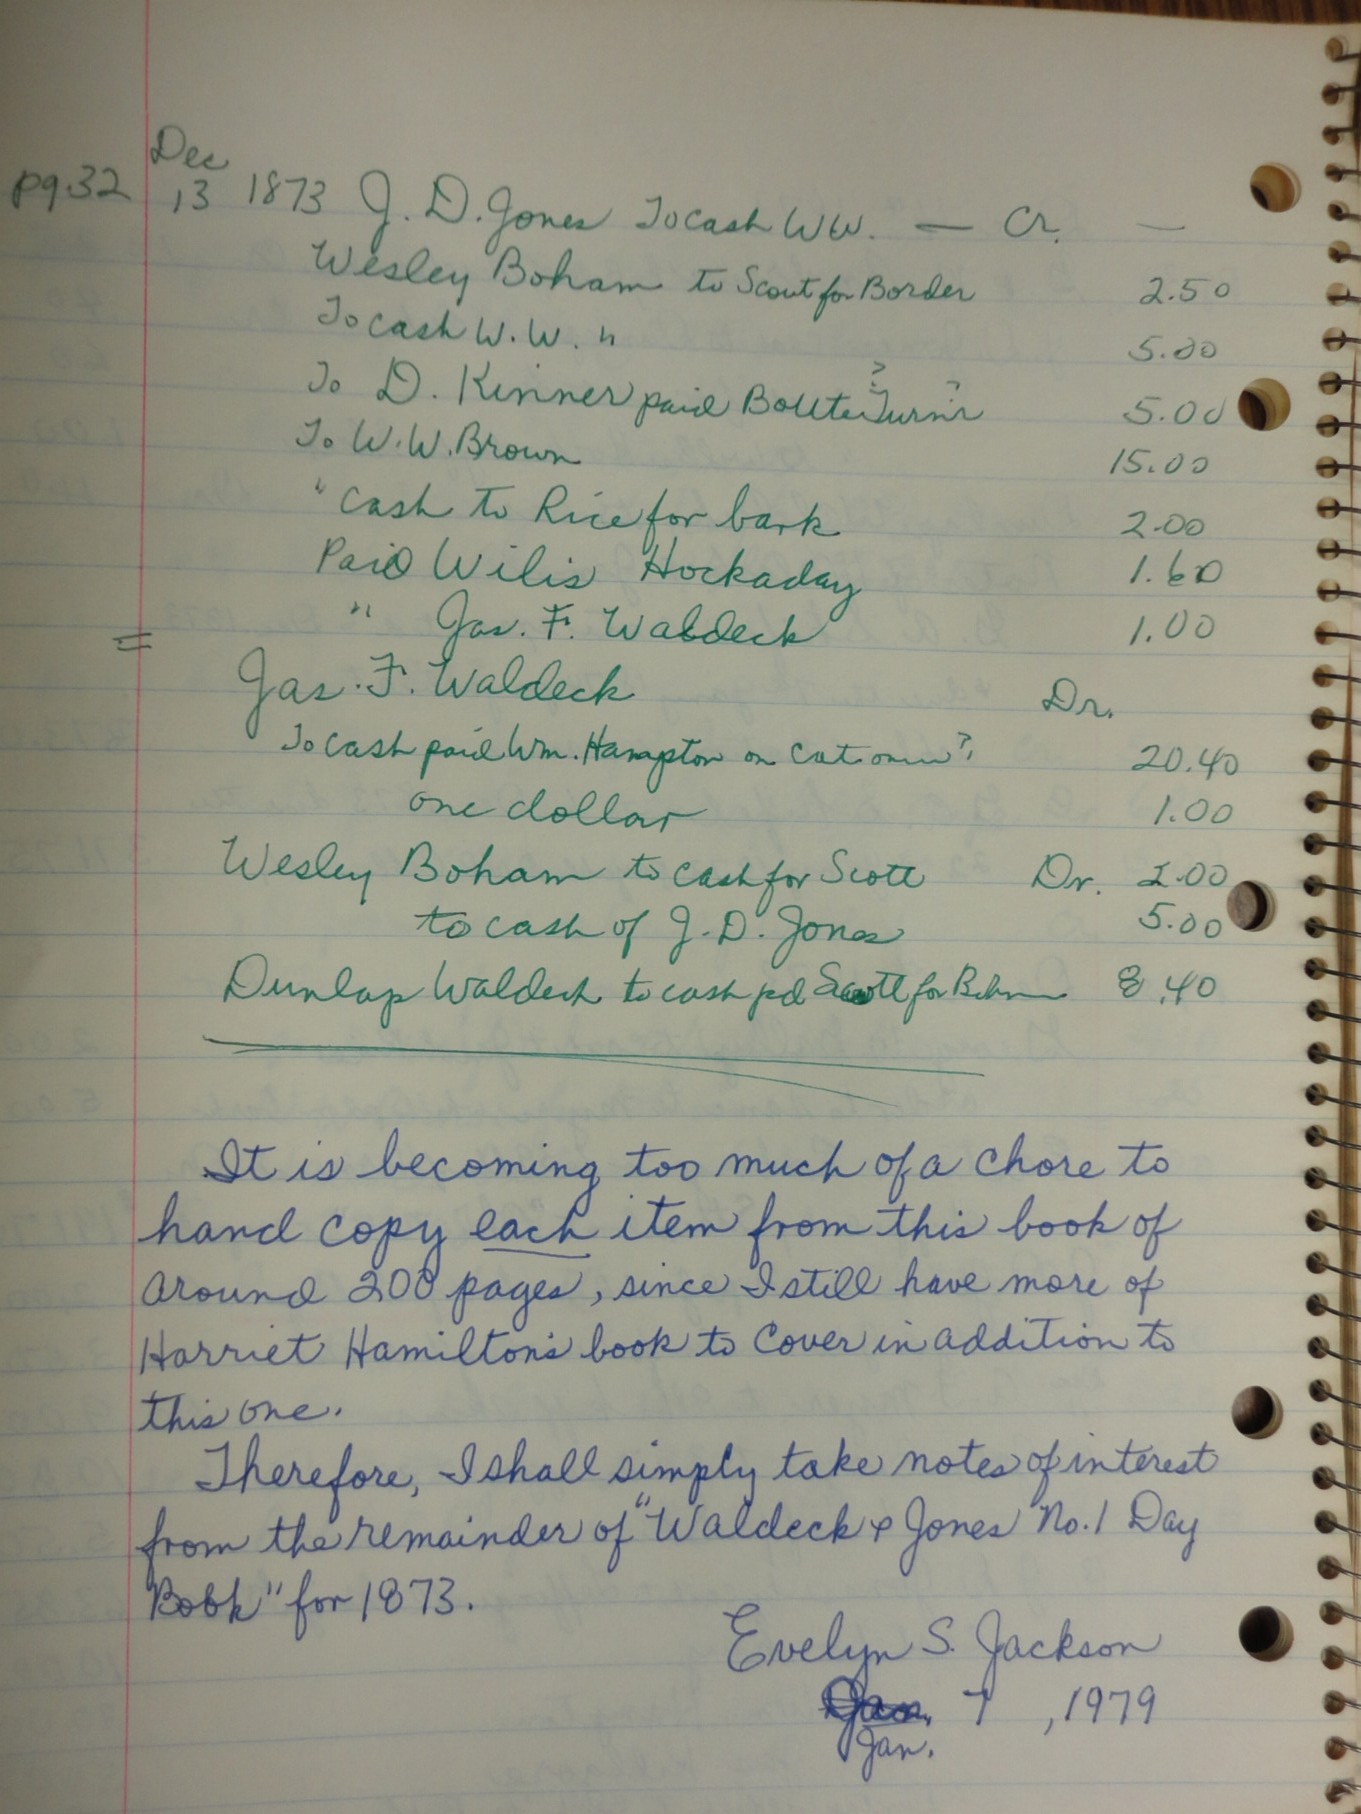 Dec
pg.32 13 1873 J. D. Jones To cash W W. — Cr. —
Wesley Boham to Scout for Border 2.50
To cash W. W. " 5.00
? ?
To D. Kinner paid 5.00
To W. W. Brown 15.00
" Cash to Rice for bark 2.00
Paid Wilis Hockaday 1.60
" Jas. F. Waldeck 1.00
=
Jas. F. Waldeck Dr.
To cash paid Wm. Hampton on ? 20.40
one dollar 1.00
Wesley Boham to cash for Scott Dr. 2.00
to cash of J. D. Jones 5.00
Dunlap Waldeck to cash pd Scott for 8.40
It is becoming too much of a chore to
hand copy each item from this book of
around 200 pages, since I still have more of
Harriet Hamilton's book to cover in addition to
this one.
Therefore, I shall simply take notes of interest
from the remainder of "Waldeck & Jones No. 1 Day
Book" for 1873.
Evelyn S. Jackson
7, 1979
Jan.